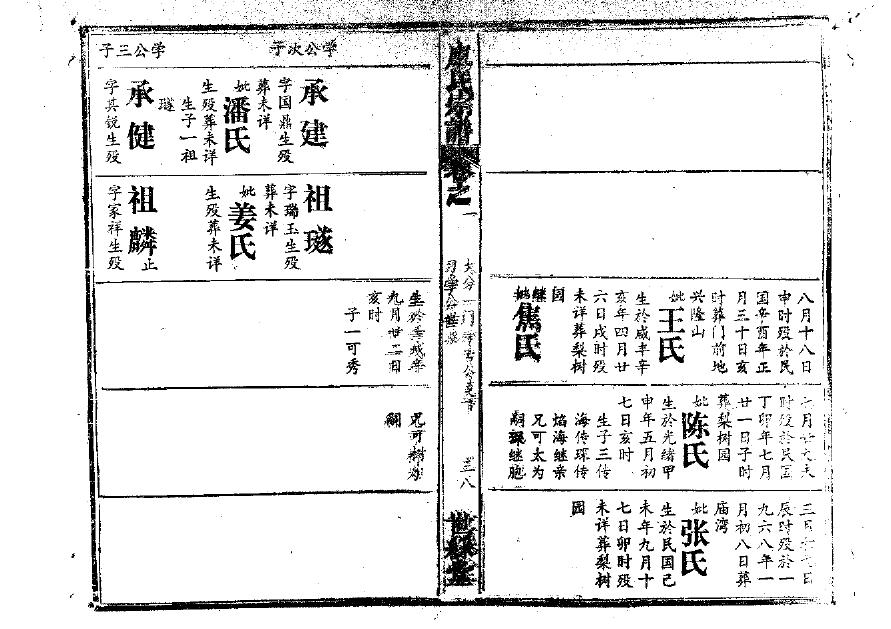 八月十八日
申时殁於民
国辛酉年正
月三十日亥
时葬门前地
兴隆山
妣王氏
生於咸丰辛
亥年四月廿
六日戌时殁
未详葬梨树
园
继
妣焦氏
时殁於民国
丁卯年七月
廿一日子时
葬梨树园
妣陈氏
生於光绪甲
申年五月初
七日亥时
生子三传
海传琛传
焰海继亲
兄可太为
嗣琛继胞
辰时殁於一
九六八年一
月初八日葬
庙湾
妣张氏
生於民国己
未年九月十
七日卯时殁
未详葬梨树
园
卢氏宗谱
卷之一
三八
世绿堂
学公次子
学公三子
承建
字国鼎生殁
葬未详
妣潘氏
生殁葬未详
生子一祖
璲
承健
字其锐生殁
祖璲
字瑞玉生殁
葬未详
妣姜氏
生殁葬未详
祖麟止
字家祥生殁
九月廿二日
亥时
子一可秀
嗣